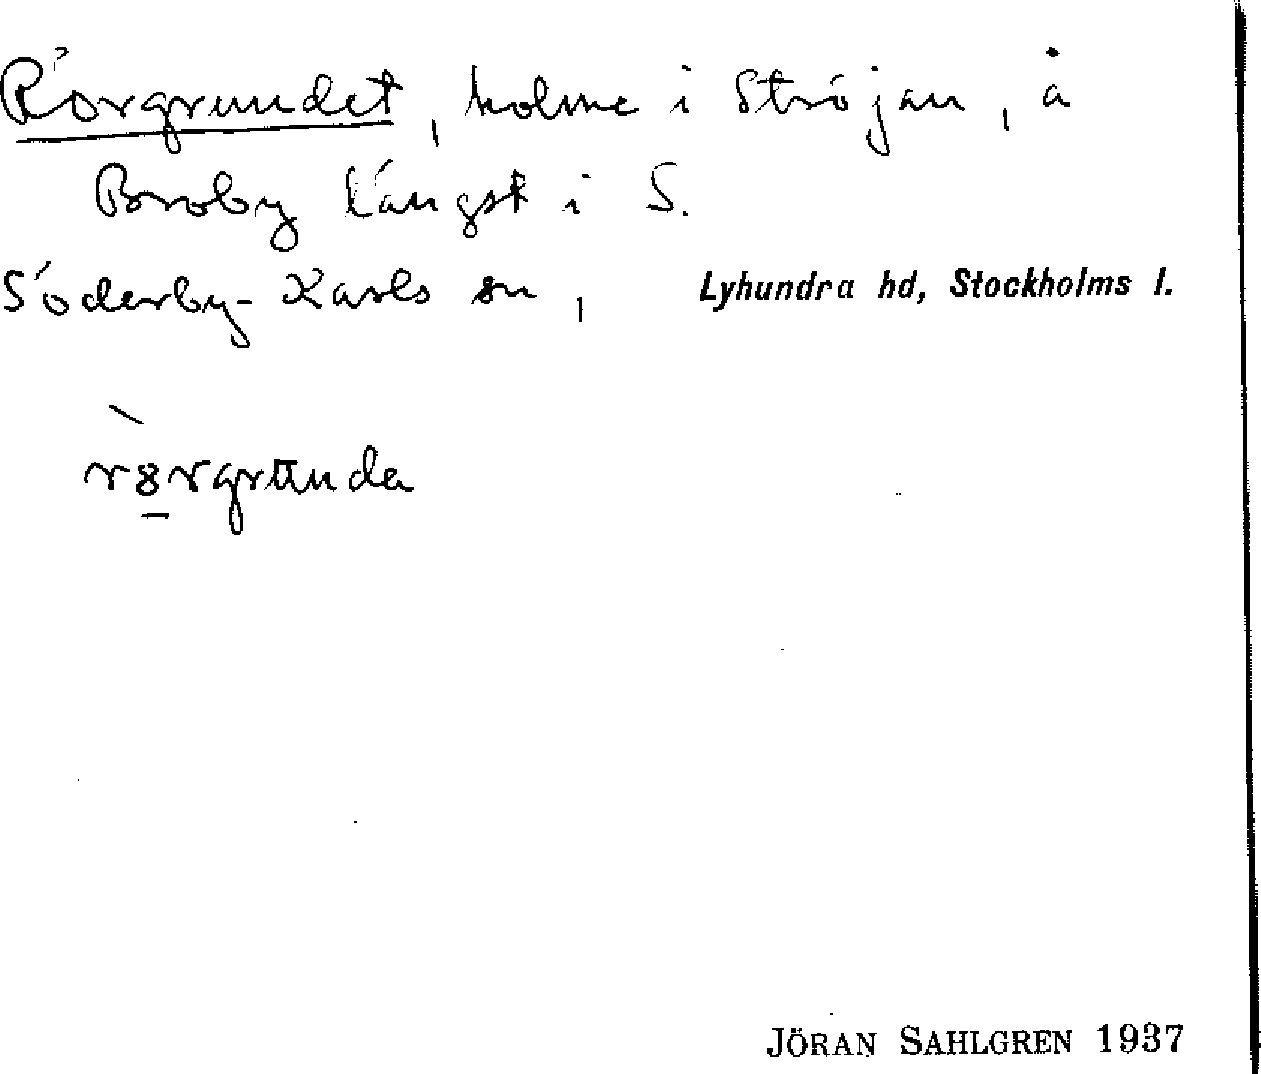 Rörgrundet, holme i Ströjan, å
Broby längst i S.
Söderby-Karls sn, Lyhundra hd, Stockholms l.
rörgrunda
JÖRAN SAHLGREN 1937